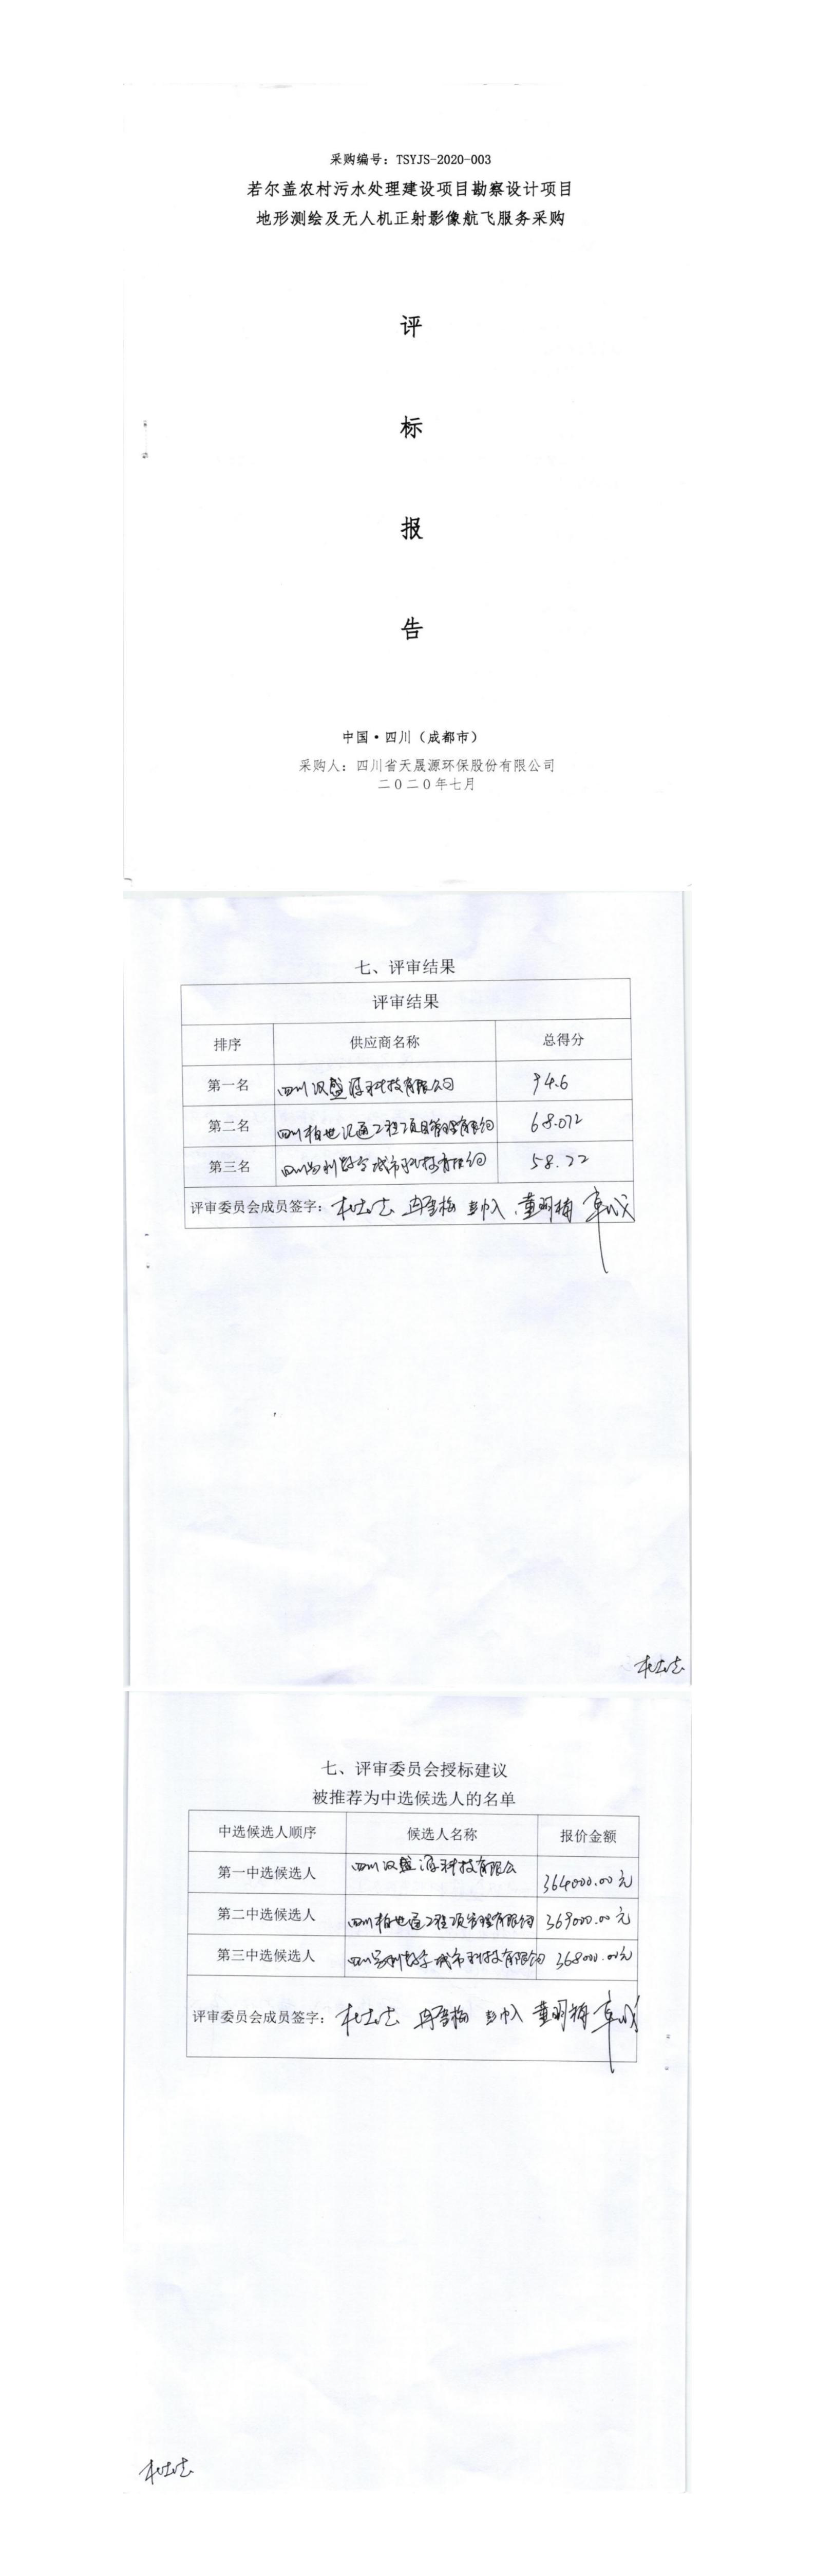 采购编号：TSYJS-2020-003
若尔盖农村污水处理建设项目勘察设计项目
地形测绘及无人机正射影像航飞服务采购
评
标
报
告
中国·四川（成都市）
采购人：四川省天晟源环保股份有限公司
二０二０年七月
七、评审结果
评审结果
排序 供应商名称 总得分
第一名 四川汉盛源科技有限公司 94.6
第二名 四川柏世汇通工程项目管理有限公司 68.072
第三名 四川 数字城市科技有限公司 58.22
评审委员会成员签字：
七、评审委员会授标建议
被推荐为中选候选人的名单
中选候选人顺序 候选人名称 报价金额
第一中选候选人 四川汉盛源科技有限公 364000.00元
第二中选候选人 四川柏世通工程项管理有限公司 369000.00元
第三中选候选人 四川 数字城市科技有限公司 368000.00元
评审委员会成员签字：